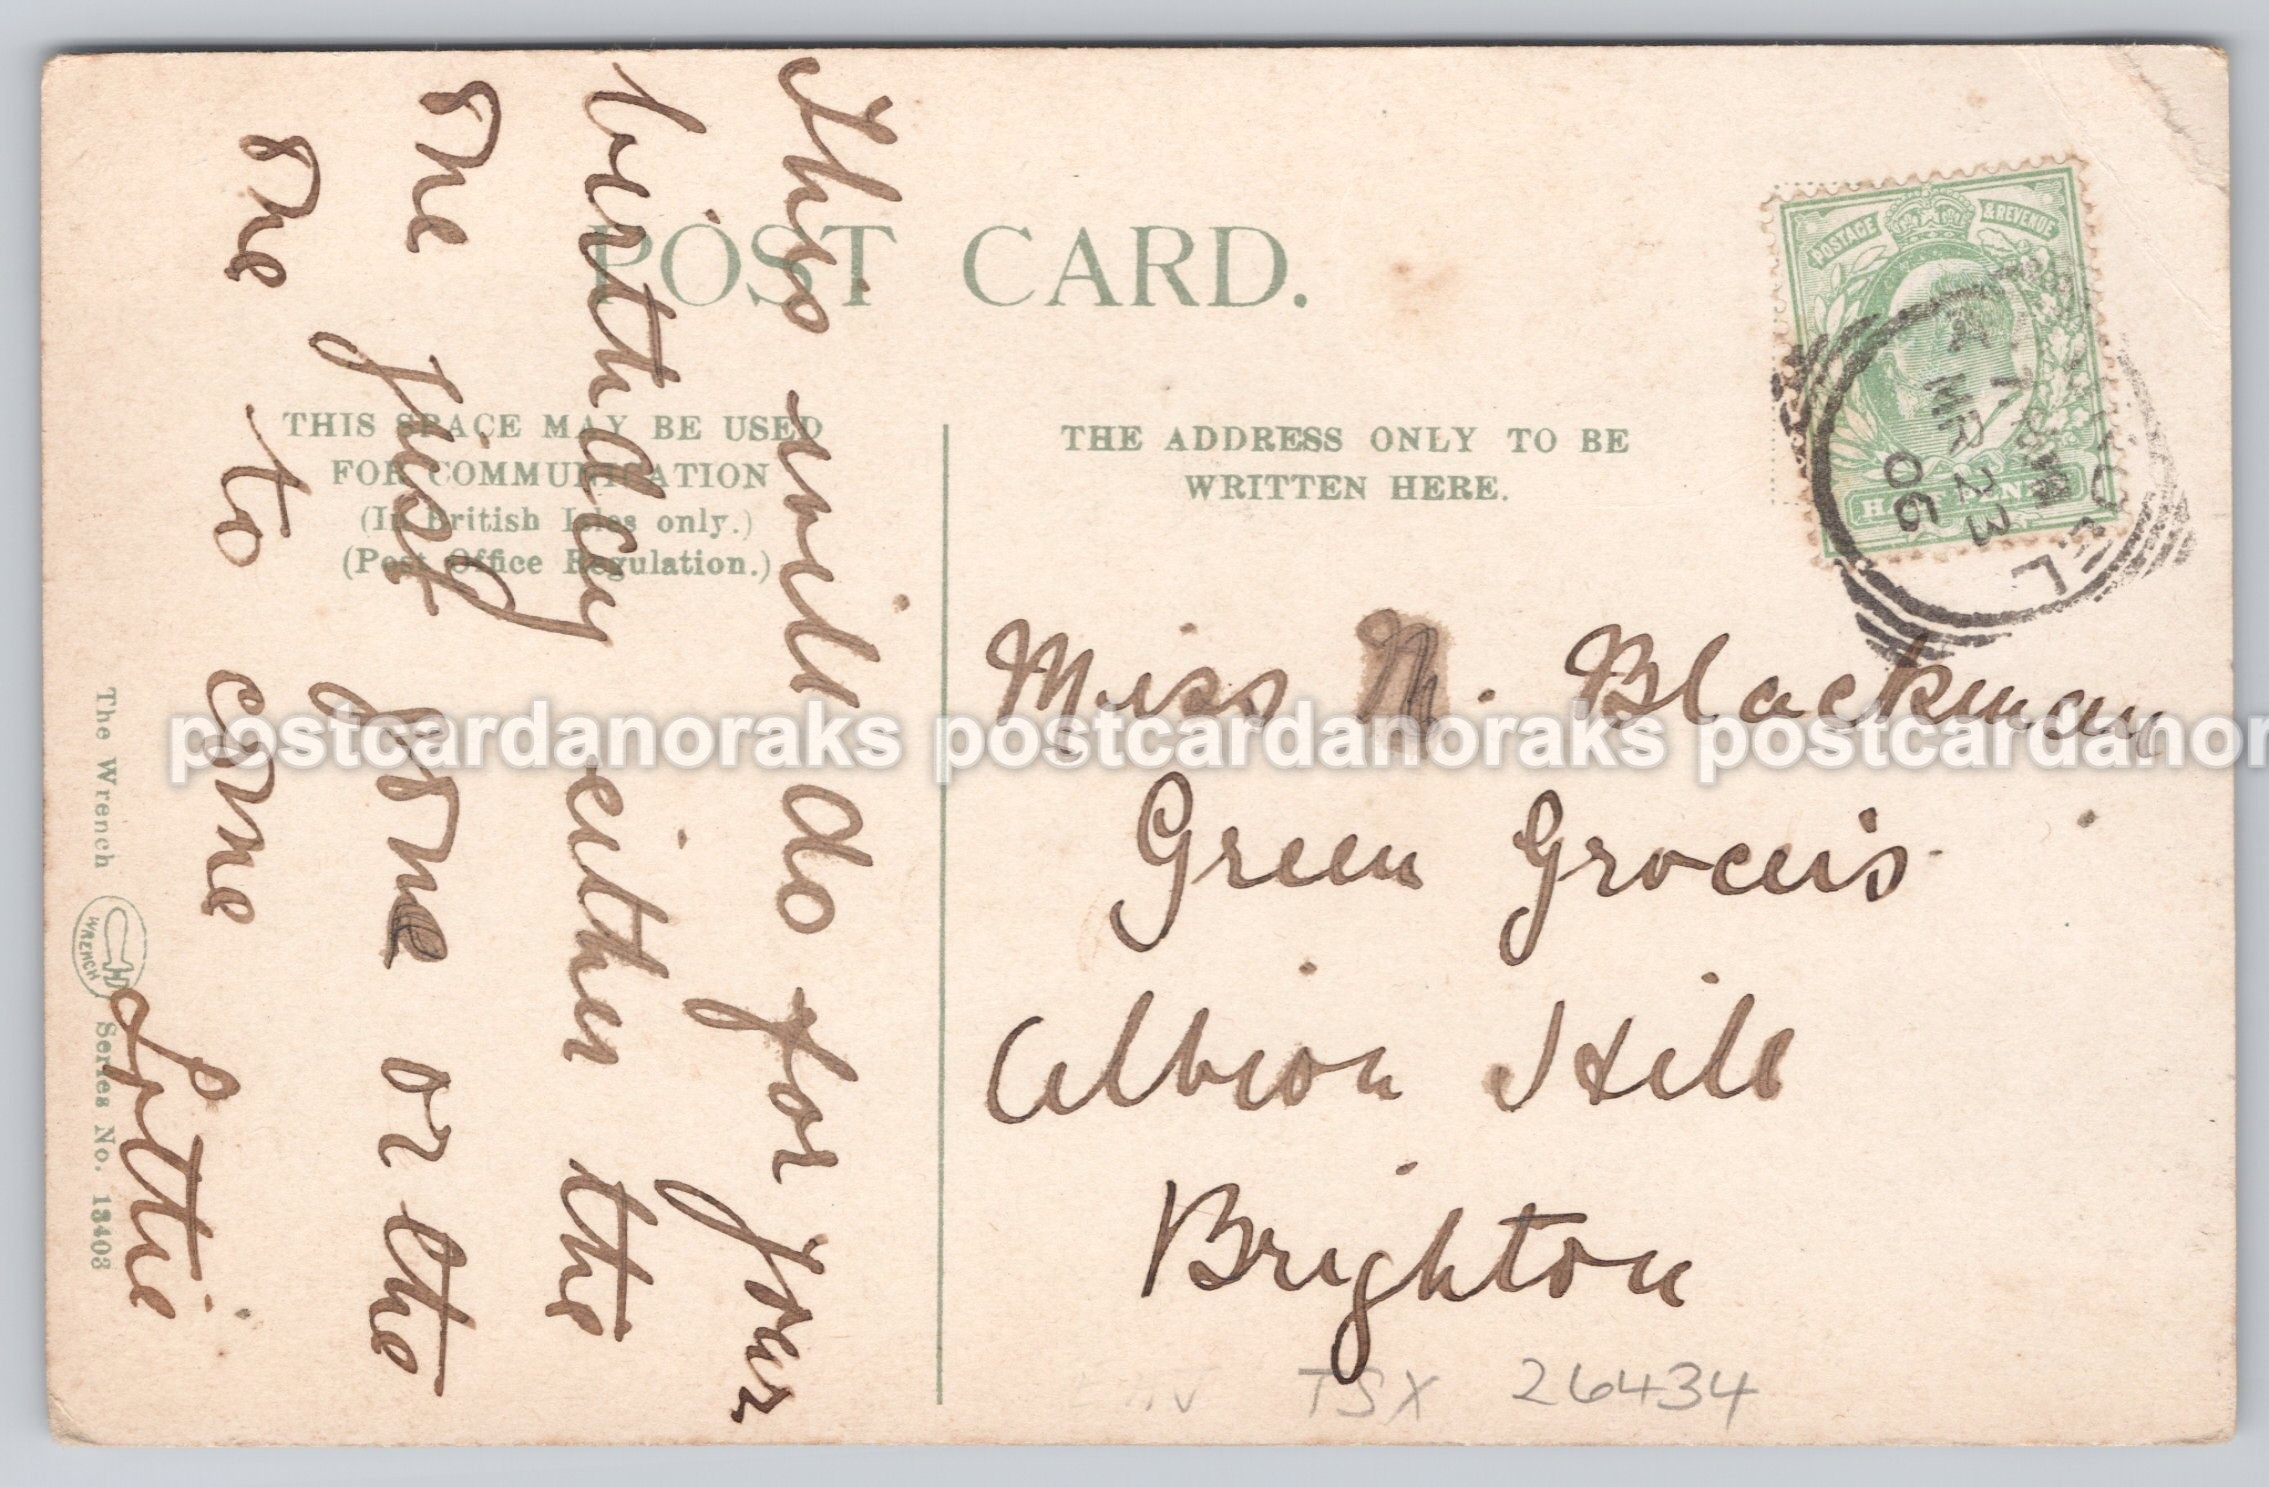 POST CARD.
THIS SPACE MAY BE USED
FOR COMMUNICATION
(In British Isles only.)
(Post Office Regulation.)
THE ADDRESS ONLY TO BE
WRITTEN HERE.
POSTAGE & REVENUE
HALFPENNY
MR 23
06
This will do for your
birthday either the
one just gone or the
one to come
Lottie
Miss M. Blackman
Green Grocers
Albion Hill
Brighton
The Wrench WRENCH Series No. 13403
TSX 26434
postcardanoraks postcardanoraks postcardanor